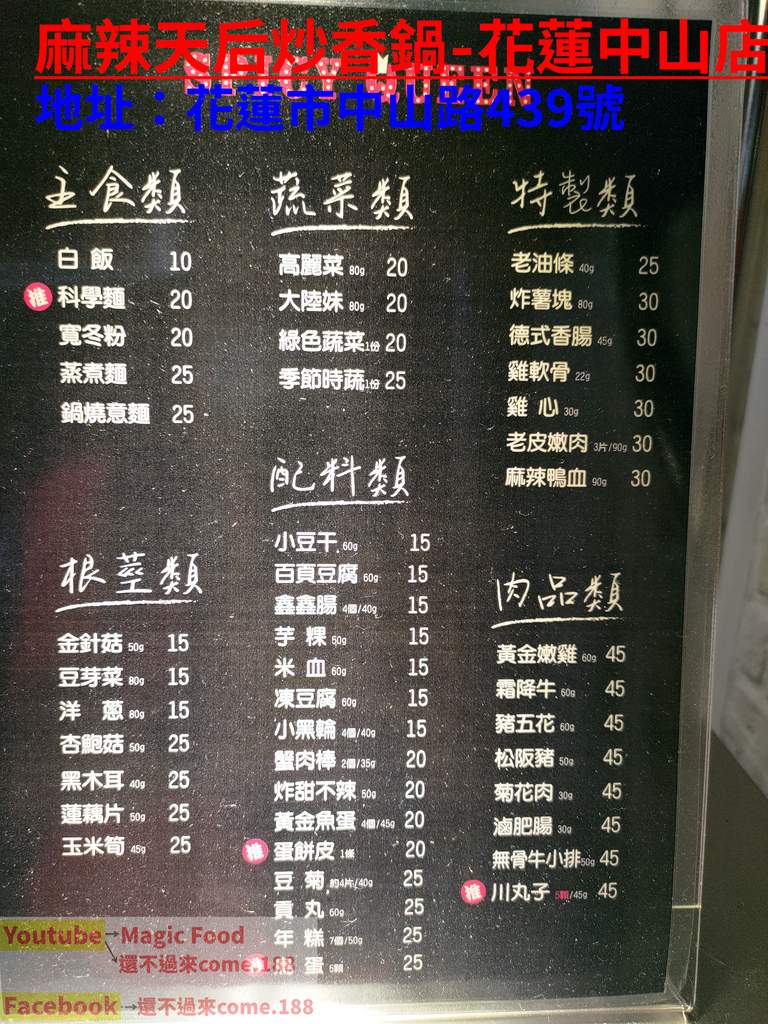 麻辣天后炒香鍋-花蓮中山店
地址：花蓮市中山路439號
主食類
白飯 10
推 科學麵 20
寬冬粉 20
蒸煮麵 25
鍋燒意麵 25
根莖類
金針菇 50g 15
豆芽菜 80g 15
洋蔥 80g 15
杏鮑菇 50g 25
黑木耳 40g 25
蓮藕片 50g 25
玉米筍 45g 25
蔬菜類
高麗菜 80g 20
大陸妹 80g 20
綠色蔬菜 1份 20
季節時蔬 1份 25
配料類
小豆干 60g 15
百頁豆腐 60g 15
鑫鑫腸 4個/40g 15
芋粿 50g 15
米血 60g 15
凍豆腐 60g 15
小黑輪 4個/40g 15
蟹肉棒 2個/35g 20
炸甜不辣 50g 20
黃金魚蛋 4個/45g 20
推 蛋餅皮 1條 20
豆菊 約4片/40g 25
貢丸 60g 25
年糕 7個/50g 25
蛋 5顆 25
特製類
老油條 40g 25
炸薯塊 80g 30
德式香腸 45g 30
雞軟骨 22g 30
雞心 30g 30
老皮嫩肉 3片/90g 30
麻辣鴨血 90g 30
肉品類
黃金嫩雞 60g 45
霜降牛 60g 45
豬五花 60g 45
松阪豬 50g 45
菊花肉 30g 45
滷肥腸 30g 45
無骨牛小排 50g 45
推 川丸子 5顆/45g 45
Youtube→Magic Food
→還不過來come.188
Facebook→還不過來come.188